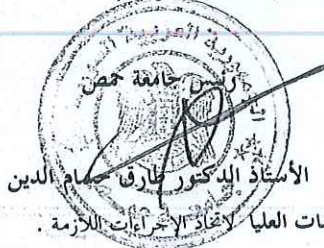 رئيس جامعة حمص
الأستاذ الدكتور طارق حسام الدين
ات العليا لاتخاذ الإجراءات اللازمة .